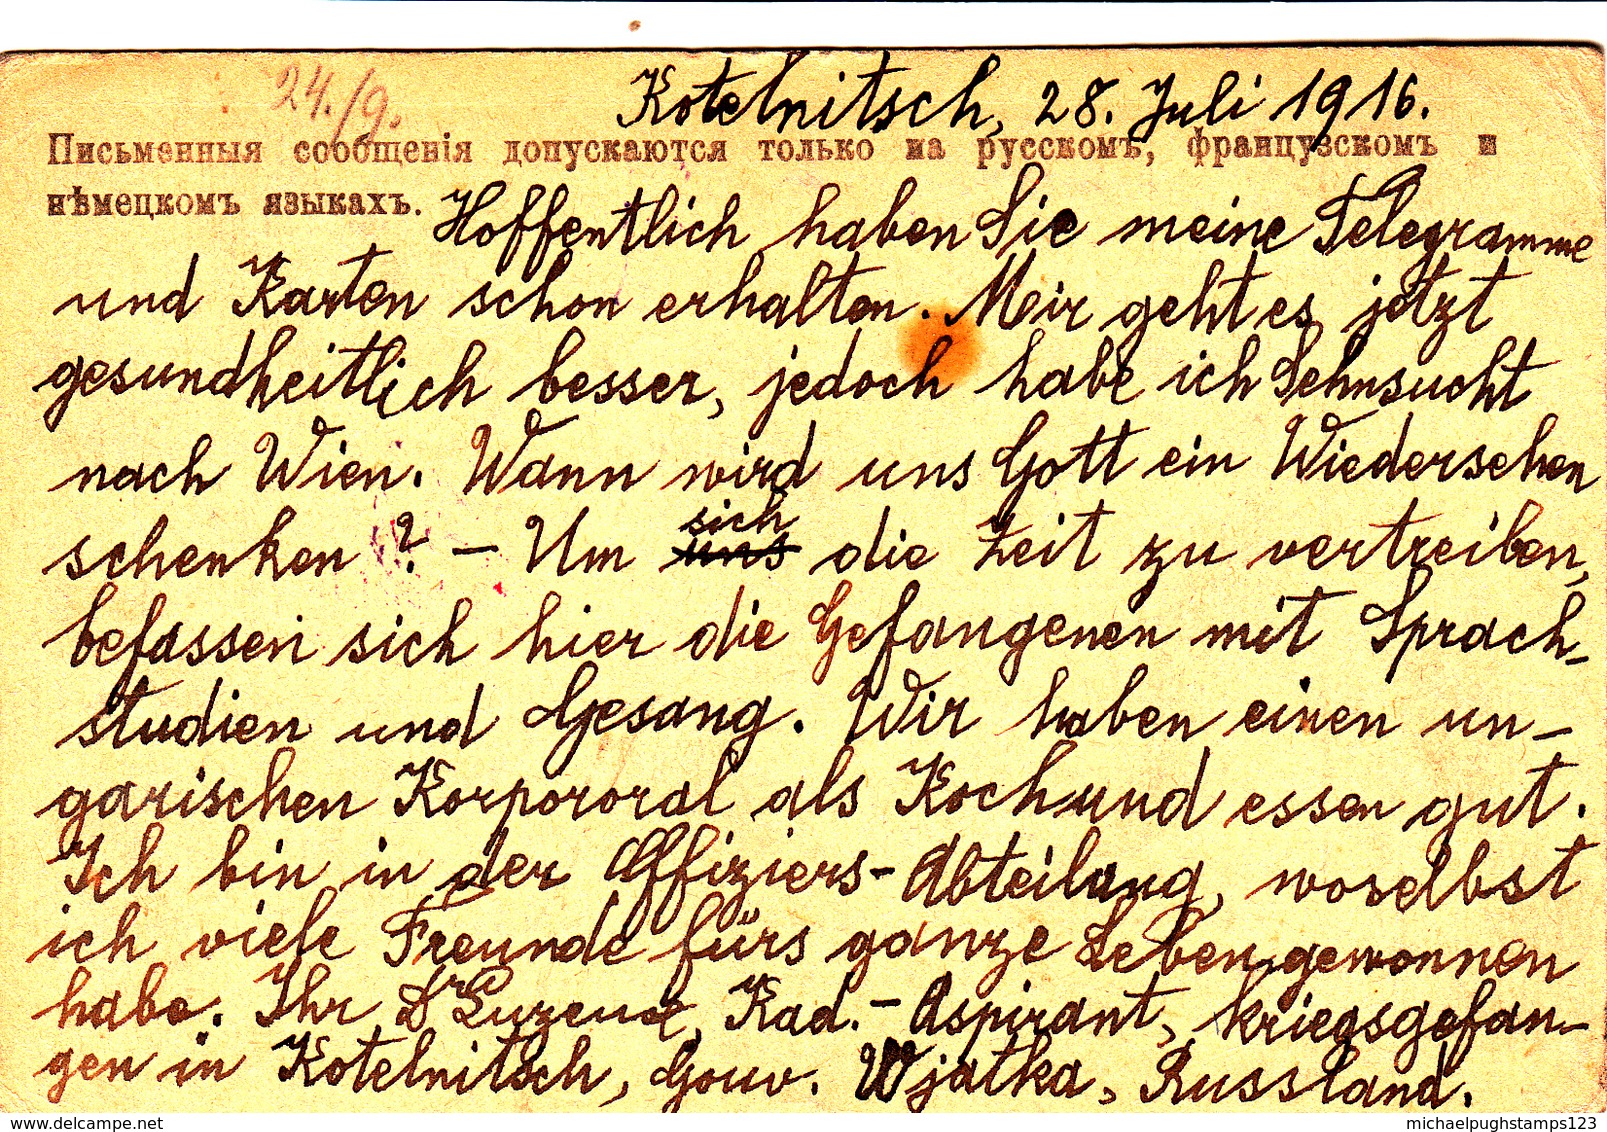 24./9.
Kotelnitsch, 28. Juli 1916.
Письменныя сообщенія допускаются только на русскомъ, французскомъ и
нѣмецкомъ языкахъ.
Hoffentlich haben Sie meine Telegramme
und Karten schon erhalten. Mir geht es jetzt
gesundheitlich besser, jedoch habe ich Sehnsucht
nach Wien. Wann wird uns Gott ein Wiedersehen
schenken? – Um uns sich die Zeit zu vertreiben,
befassen sich hier die Gefangenen mit Sprach-
studien und Gesang. Wir haben einen un-
garischen Korpororal als Koch und essen gut.
Ich bin in der Offiziers-Abteilung, woselbst
ich viele Freunde fürs ganze Leben gewonnen
habe. Ihr Dr Kad.-Aspirant, kriegsgefan-
gen in Kotelnitsch, Gouv. Wjatka, Russland.
www.delcampe.net
michaelpughstamps123